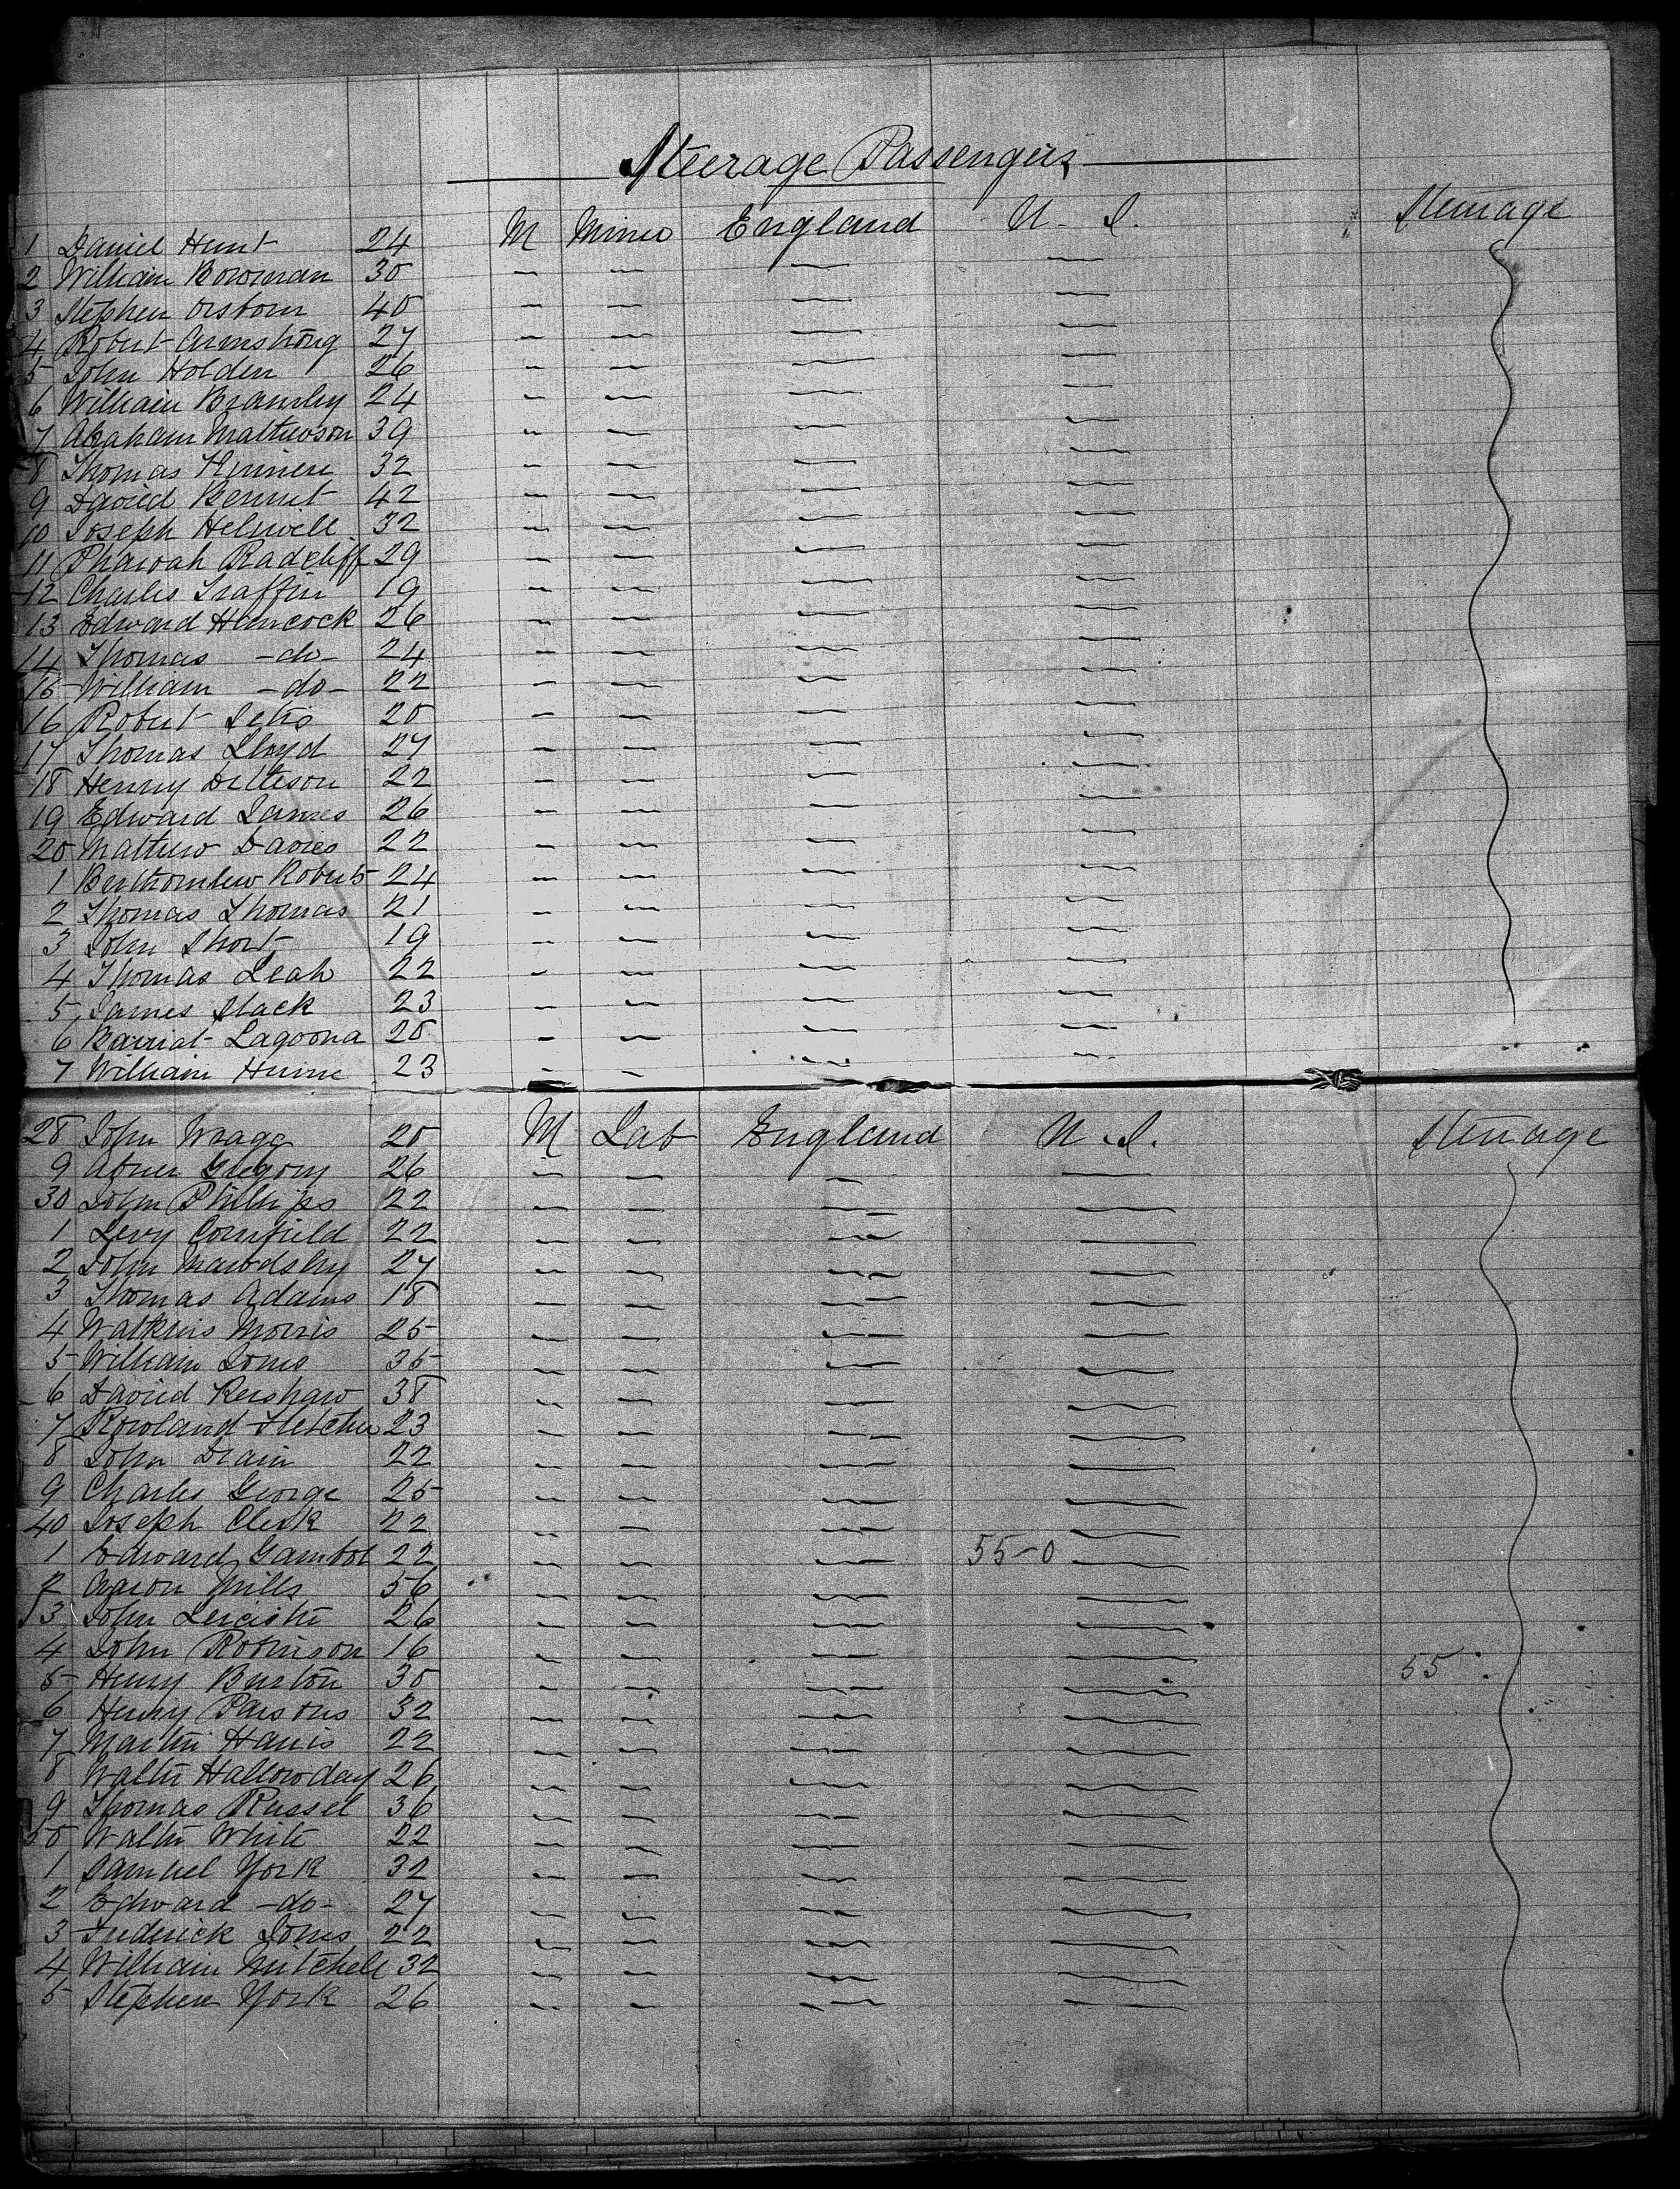 Steerage Passengers
1 Daniel Hunt 24 M Miner England U. S. Steerage
2 William Bowman 30 " " — —
3 Stephen Osborn 40 " " — —
4 Robert Armstrong 27 " " — —
5 John Holden 26 " " — —
6 William Bramley 24 " " — —
7 Abraham Mathewson 39 " " — —
8 Thomas 32 " " — —
9 David Bennet 42 " " — —
10 Joseph Helliwell 32 " " — —
11 Pharoah Radcliff 29 " " — —
12 Charles Traffin 19 " " — —
13 Edward Hancock 26 " " — —
14 Thomas -do- 24 " " — —
15 William -do- 22 " " — —
16 Robert 20 " " — —
17 Thomas Lloyd 27 " " — —
18 Henry 22 " " — —
19 Edward James 26 " " — —
20 Mathew Davies 22 " " — —
1 Berthomlew Roberts 24 " " — —
2 Thomas Thomas 21 " " — —
3 John Short 19 " " — —
4 Thomas Leah 22 " " — —
5 James Slack 23 " " — —
6 Lagoona 20 " " — —
7 William Hume 23 " " — —
28 John Wragg 20 M Lab England U. S. Steerage
9 Abner Gregory 26 " " — —
30 John Phillips 22 " " — —
1 Levy Cornfield 22 " " — —
2 John Mawdsley 27 " " — —
3 Thomas Adams 18 " " — —
4 Watkins Morris 25 " " — —
5 William Jones 35 " " — —
6 David Kershaw 38 " " — —
7 Rowland Fletcher 23 " " — —
8 John Drain 22 " " — —
9 Charles George 25 " " — —
40 Joseph Clerk 22 " " — —
1 Edward Gambol 22 " " — 55-0 —
2 Aaron Mills 56 " " — —
3 John 26 " " — —
4 John Robinson 16 " " — —
5 Henry Burton 30 " " — — 55
6 Henry Parsons 32 " " — —
7 Martin Harris 22 " " — —
8 Walter Halloway 26 " " — —
9 Thomas Russel 36 " " — —
50 Walter White 22 " " — —
1 Samuel York 32 " " — —
2 Edward -do- 27 " " — —
3 Frederick Jones 22 " " — —
4 William Mitchell 32 " " — —
5 Stephen York 26 " " — —